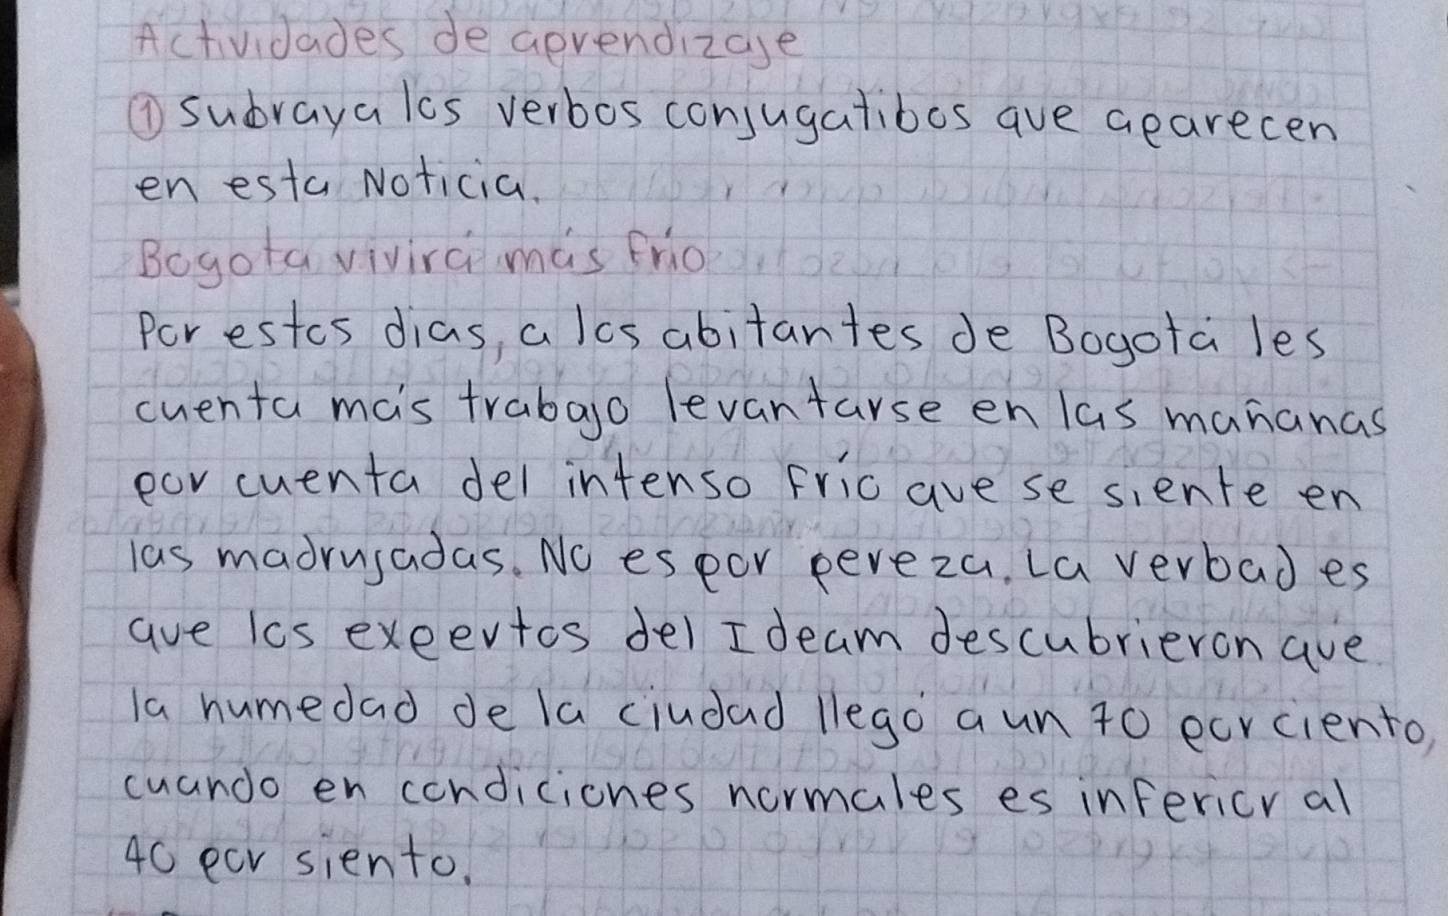 Actividades de aprendizaje
① subraya los verbos conjugatibos que aparecen
en esta Noticia.
Bogota vivirá más frío
Por estos dias, a los abitantes de Bogotá les
cuenta más trabajo levantarse en las mañanas
por cuenta del intenso frío que se siente en
las madrugadas. No es por pereza. La verbad es
que los expertos del Ideam descubrieron que
la humedad de la ciudad llegó a un 70 por ciento,
cuando en condiciones normales es inferior al
40 por siento.